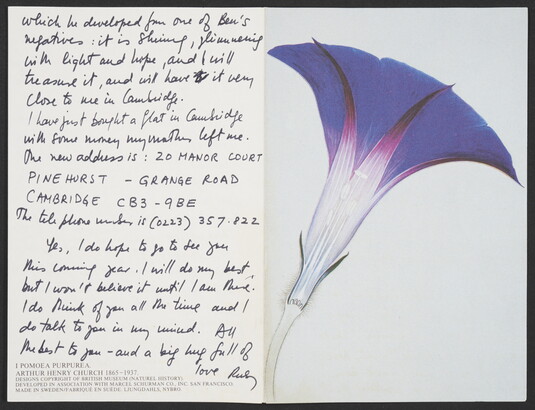 which he developed from one of Ben's
negatives : it is shining, glimmering
with light and hope, and I will
treasure it, and will have it very
close to me in Cambridge.
I have just bought a flat in Cambridge
with some money my mother left me.
The new address is : 20 MANOR COURT
PINEHURST - GRANGE ROAD
CAMBRIDGE CB3-9BE
The telephone number is (0223) 357.822
Yes, I do hope to go to see you
this coming year. I will do my best,
but I won't believe it until I am there.
I do think of you all the time and I
do talk to you in my mind. All
the best to you - and a big hug full of
love
I POMOEA PURPUREA.
ARTHUR HENRY CHURCH 1865-1937.
DESIGNS COPYRIGHT OF BRITISH MUSEUM (NATUREL HISTORY)
DEVELOPED IN ASSOCIATION WITH MARCEL SCHURMAN CO., INC. SAN FRANCISCO.
MADE IN SWEDEN/FABRIQUE EN SUEDE. LJUNGDAHLS, NYBRO.